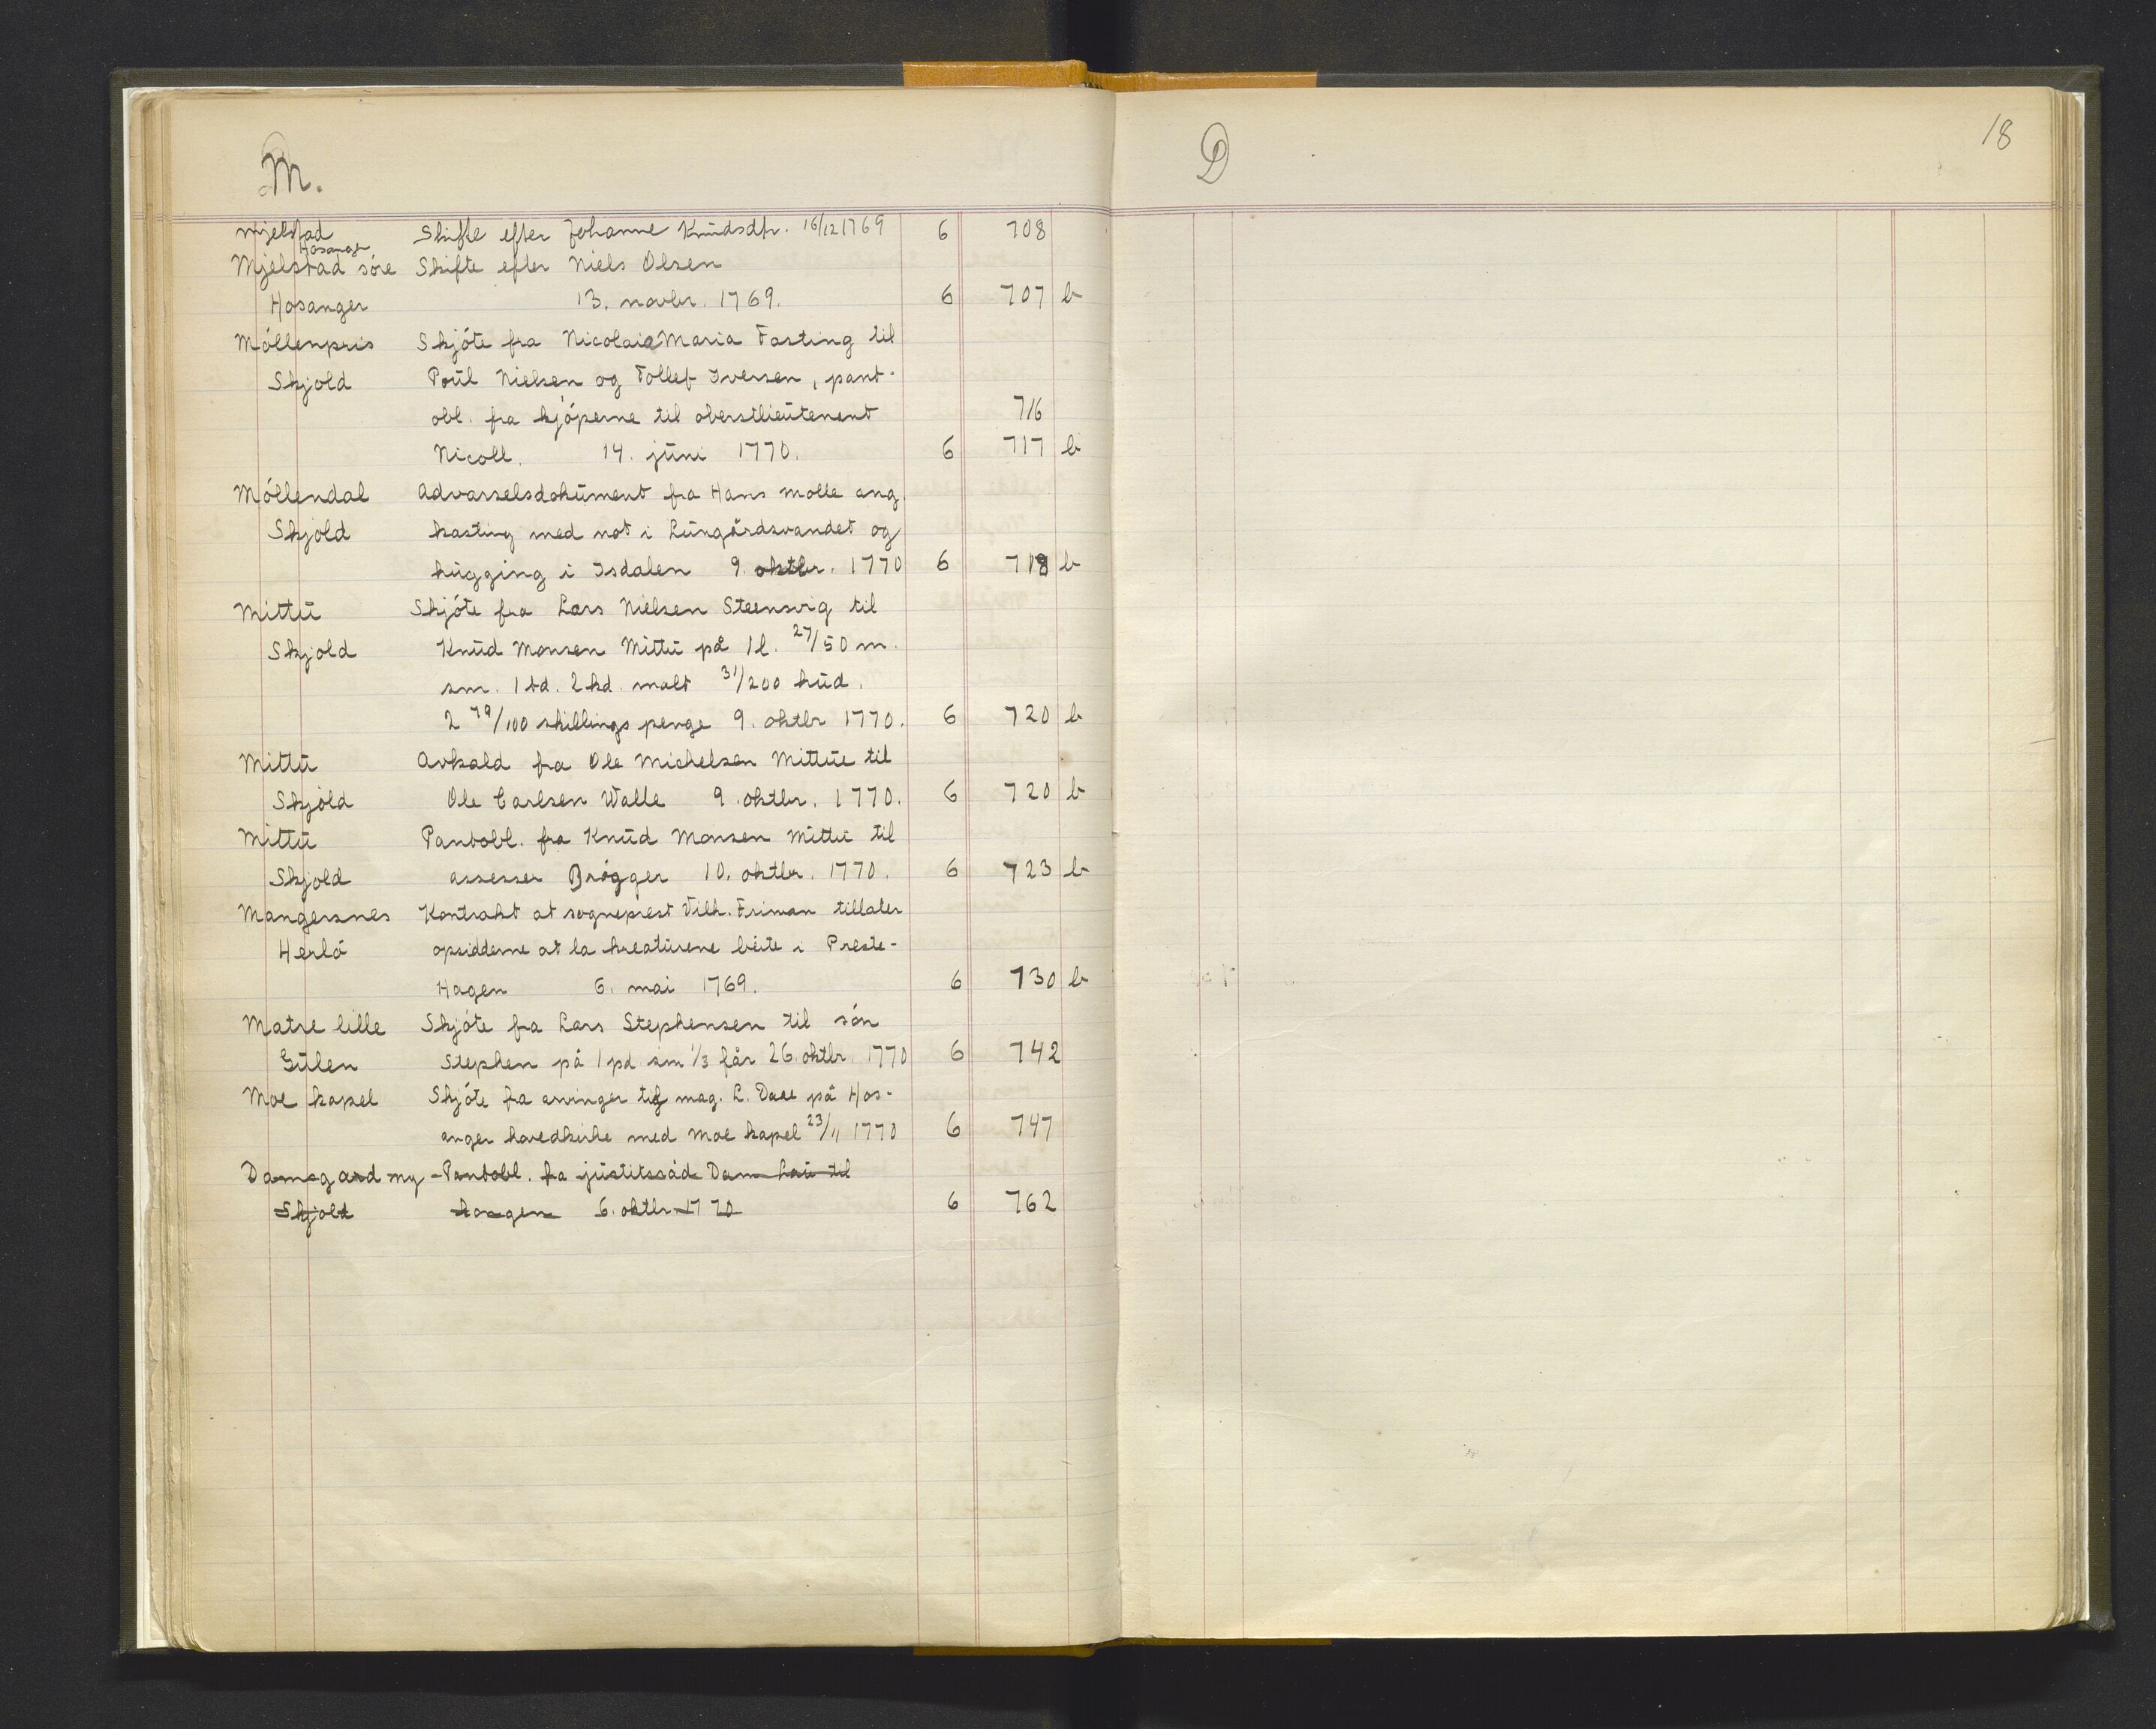 M.
Mjelstad Skifte efter Johanne Knudsdtr. 16/12 1769 6 708
Hosanger
Mjelstad söre Skifte efter Niels Olsen
Hosanger 13. novbr. 1769. 6 707 b
Möllenpris Skjöte fra Nicolaia Maria Fasting til
Skjold Poul Nielsen og Tollef Iversen, pant-
obl. fra kjöperne til oberstlieutenent 716
Nicoll. 14. juni 1770. 6 717 b
Möllendal Advarselsdokument fra Hans Molle ang.
Skjold kasting med not i Lungårdsvandet og
hugging i Isdalen 9. oktbr. 1770 6 718 b
Mittu Skjöte fra Lars Nielsen Steensvig til
Skjold Knud Monsen Mittu på 1 l. 27/50 m.
sm. 1 td. 2 kd. malt 31/200 hud.
2 79/100 skillings penge 9. oktbr 1770. 6 720 b
Mittu Avkald fra Ole Michelsen Mittue til
Skjöld Ole Carlsen Walle 9. oktbr. 1770. 6 720 b
Mittu Pantobl. fra Knud Monsen Mittu til
Skjold assesser Brögger 10. oktbr. 1770. 6 723 b
Mangersnes Kontrakt at sogneprest Vilh. Friman tillater
Herlö opsidderne at la kreaturene beite i Preste-
Hagen 6. mai 1769. 6 730 b
Matre lille Skjöte fra Lars Stephensen til sön
Gulen Stephen på 1 pd. sm 1/3 får 26. oktbr. 1770 6 742
Moe kapel Skjöte fra arvinger til mag. L. Daae på Hos-
anger hovedkirke med Moe kapel 23/11 1770 6 747
Damsgard my - Pantobl. fra justitsråd Dam hau til
Skjold kasgen 6. oktbr 1770 6 762
D
18